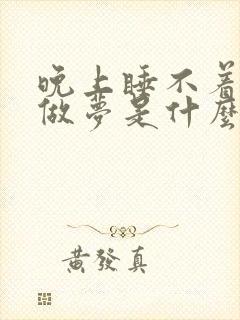 晚上睡不着
做夢是什麼
黃發真